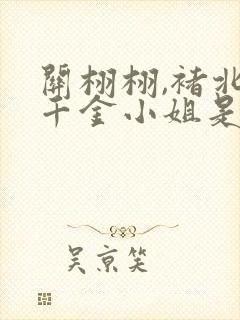 關栩栩,褚北
千金小姐是
吴京笑